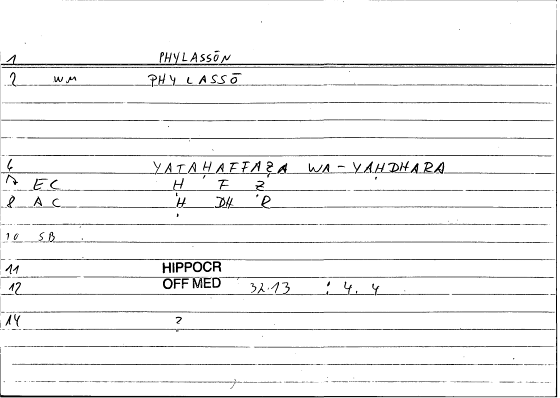 1 PHYLASSŌN
2 WM PHYLASSŌ
6 YATAḤAFFAẒA WA-YAḤDHARA
7 EC Ḥ F Ẓ
8 AC Ḥ DH R
10 SB
11 HIPPOCR
12 OFF MED 32.13 : 4. 4
14 ?